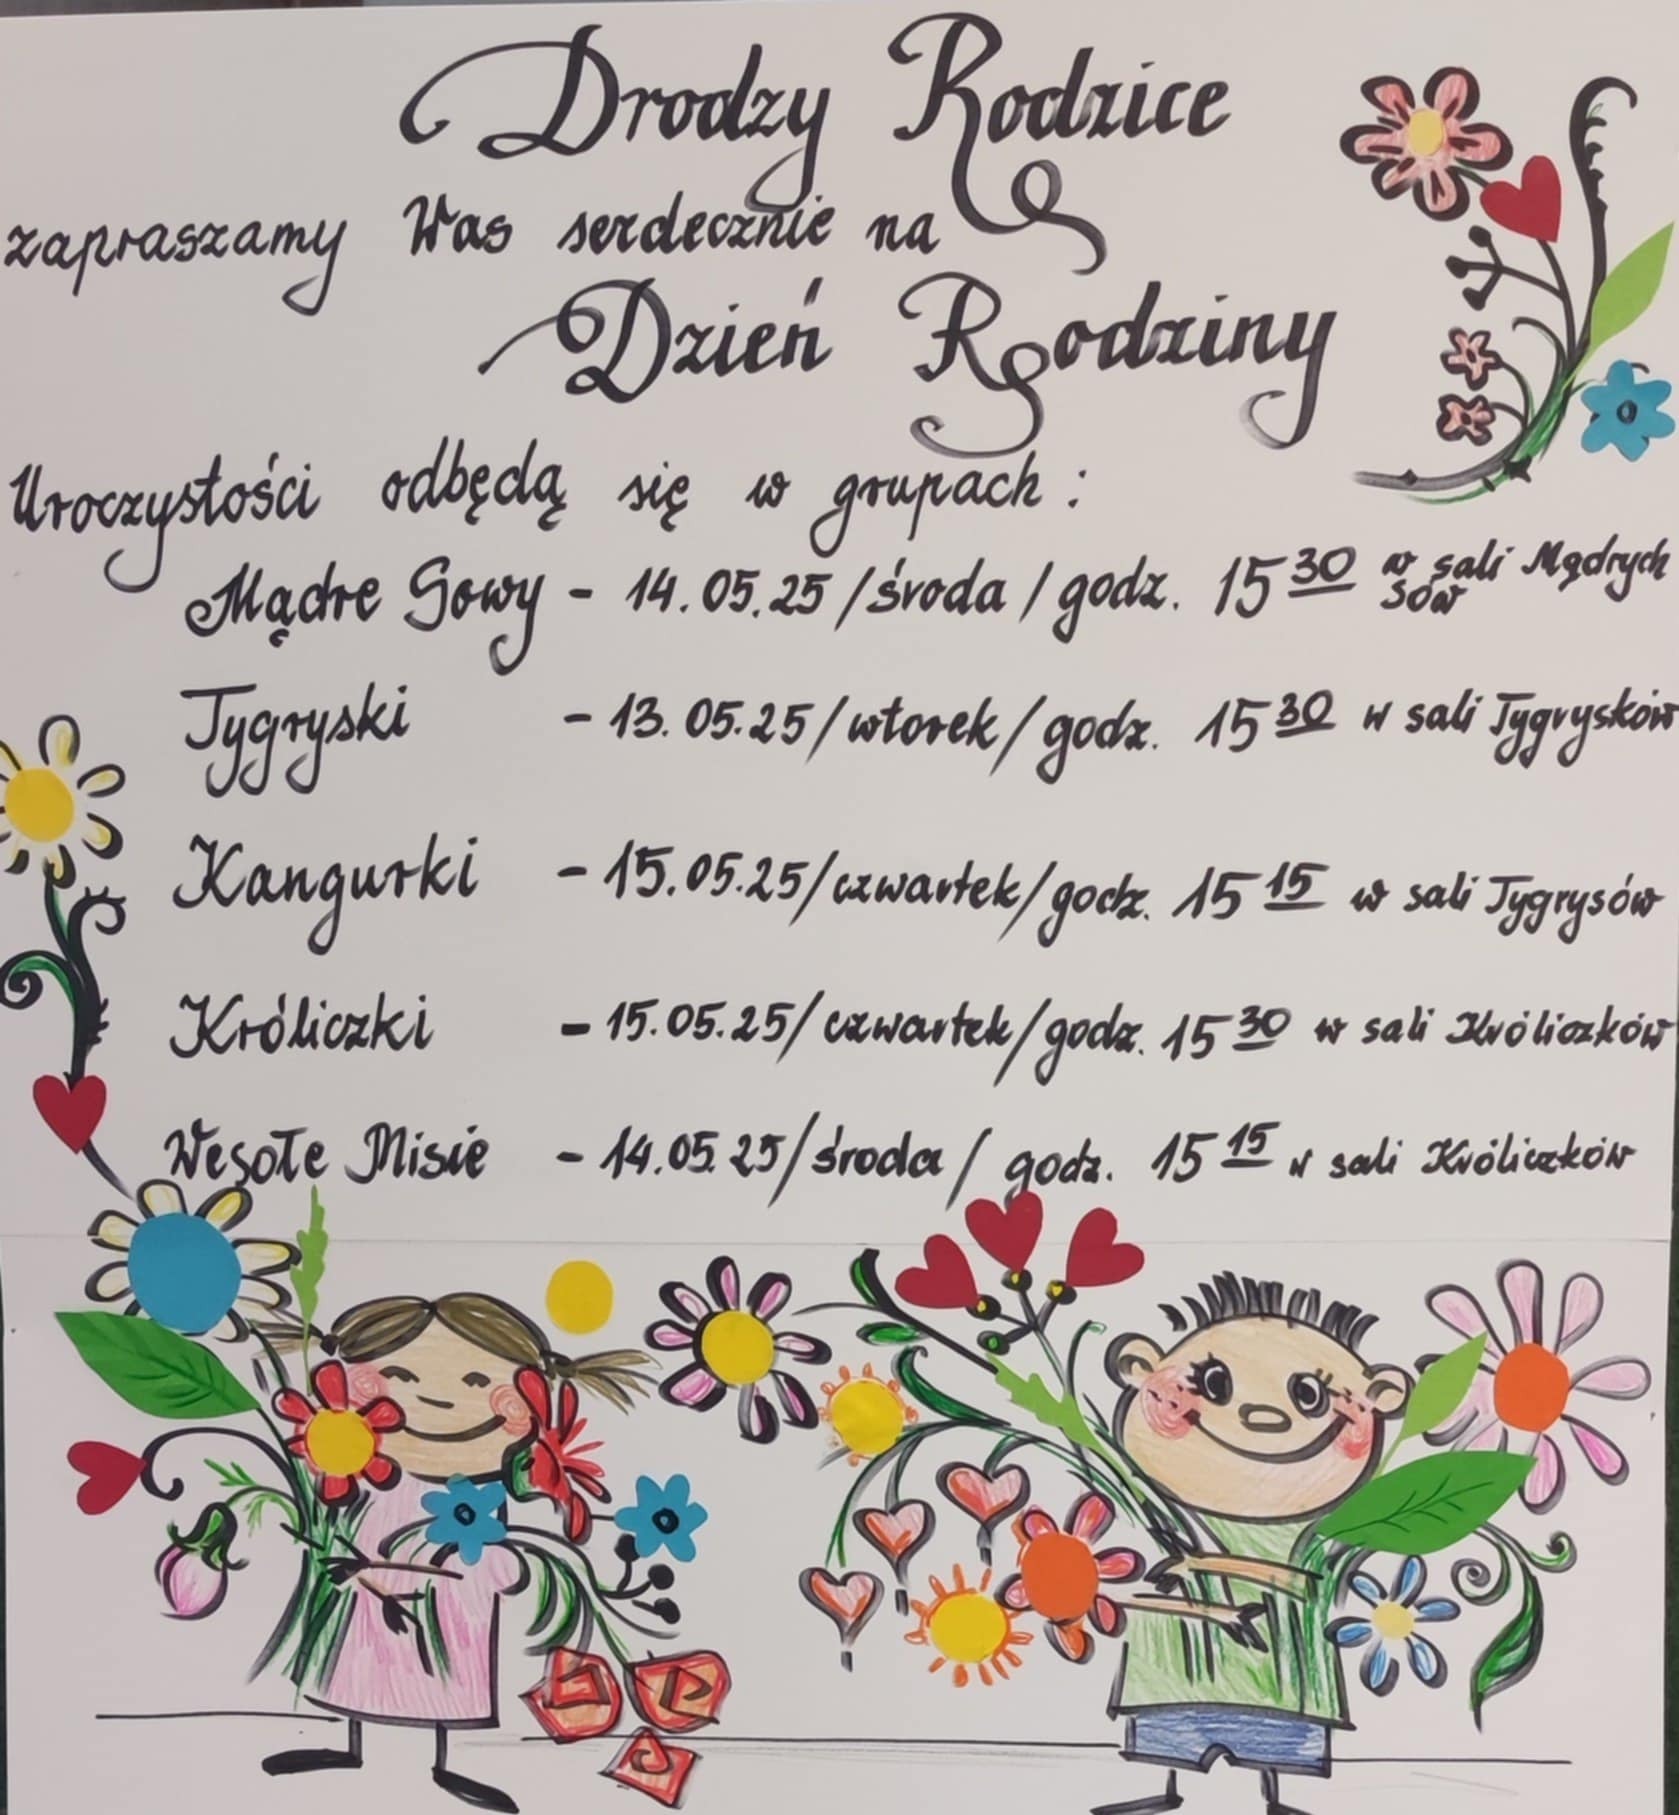 Drodzy Rodzice
zapraszamy Was serdecznie na
Dzień Rodziny
Uroczystości odbędą się w grupach :
Mądre Sowy - 14.05.25 /środa / godz. 15 30 w sali Mądrych Sów
Tygryski - 13.05.25/wtorek/godz. 15 30 w sali Tygrysków
Kangurki - 15.05.25/czwartek/godz. 15 15 w sali Tygrysów
Króliczki - 15.05.25/czwartek/godz. 15 30 w sali Króliczków
Wesołe Misie - 14.05.25/środa/ godz. 15 15 w sali Króliczków